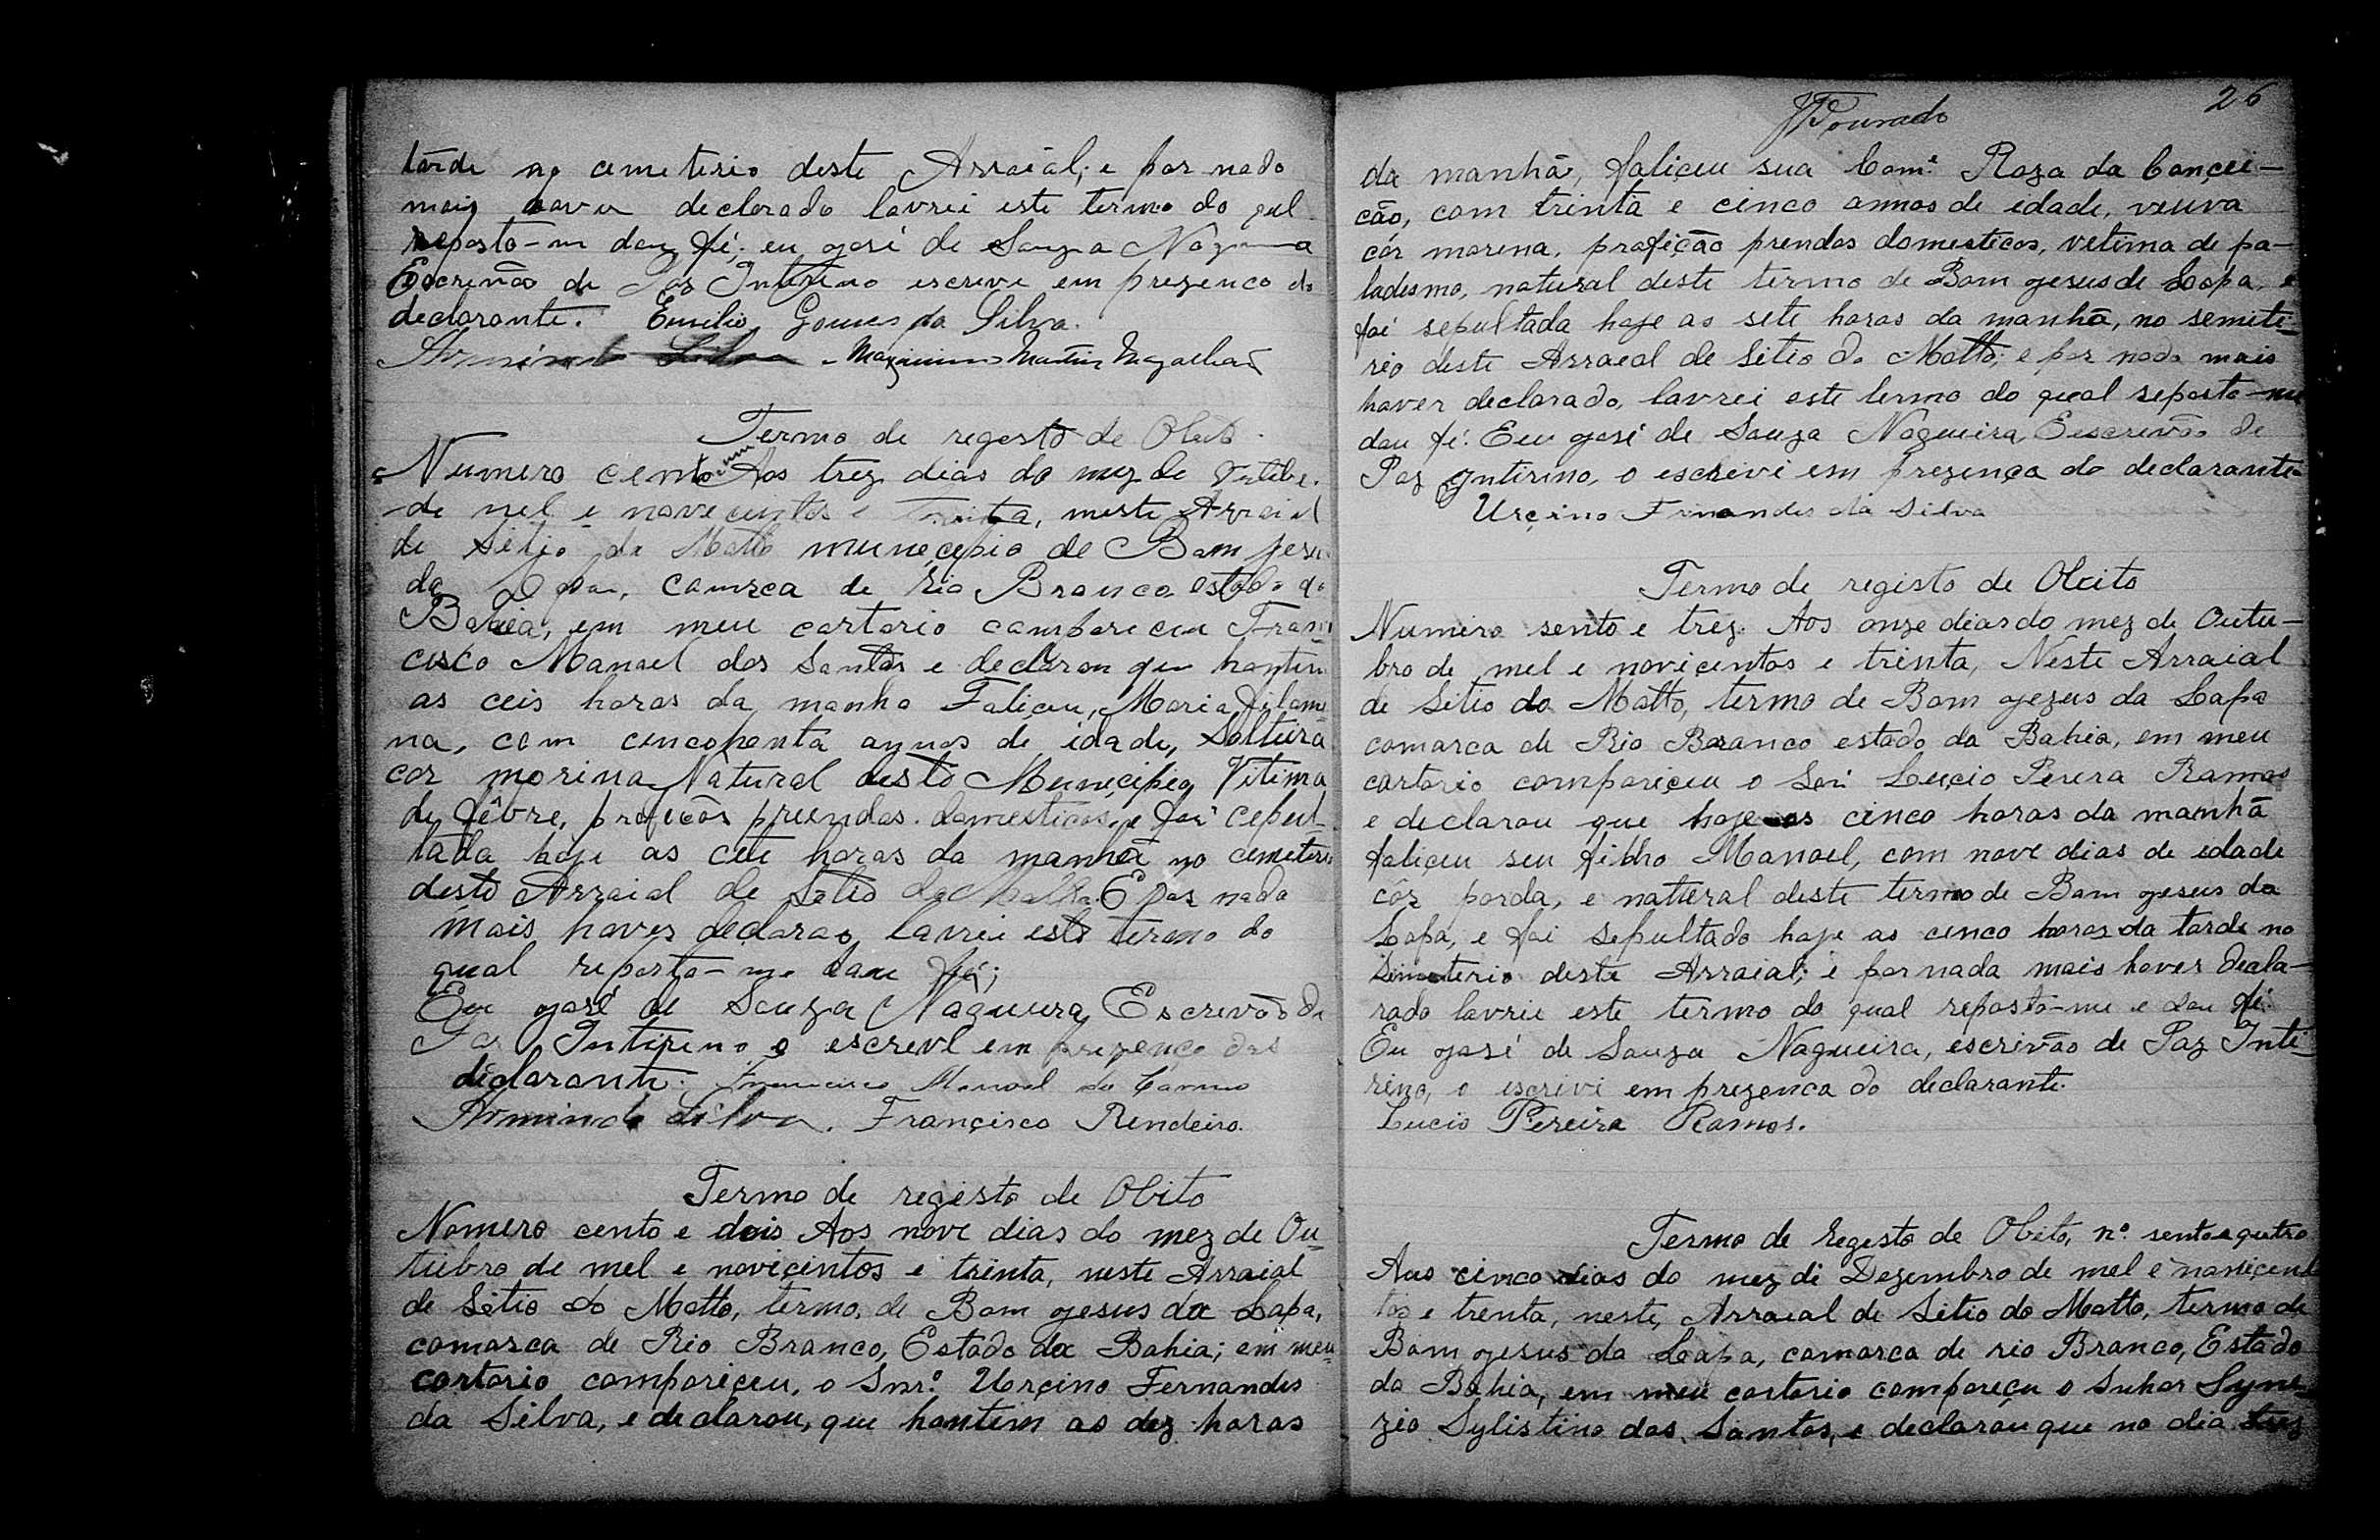 tarde no cemeterio deste Arraial; e por nada
mais haver declarado lavrei este termo do qual
reposto-me dou fé; eu José de Souza Nogueira
Escrivão de Paz Interino escreve em prezenca do
declarante. Emilio Gomes da Silva.
Arminndo Silva - Maximiano Martins Magalhães
Termo de regesto de Obito.
Numero cento um Aos trez dias do mez de Outubr.
de mel e novecentos e Trinta, neste Arraial
de Sitio do Matto munecepio de Bom Jesu
da Lapa, comrca de Rio Branco estado da
Bahia, em meu cartorio compareceu Fran-
cisco Manoel dos Santos e declaron que hontem
as ceis horas da manha Faliçeu, Maria filome-
na, com cincohenta annos de idade, Solteira
cor morina Natural desto Municipio, Vitima
de fêbre, profecõs prendas domesticas, e foi cepul-
tada hoje as cete horas da manhã no cemeterio
desto Arraial de Sitio do Matto. E por nada
mais haver declarao, lavrei esto termo do
qual reporto-me dou fé;
Eu José de Souza Nogueira Escrevão de
Paz Intireno e escrevi em prezença das
declarante. Francisco Manoel do Carmo
Armindo Silva. Françisco Rendeiro.
Termo de registo de Obito
Nomero cento e dois Aos nove dias do mez de Ou-
tubro de mel e noviçintos e trinta, neste Arraial
de Sitio do Matto, termo, de Bom Jesus da Lapa,
comarca de Rio Branco, Estado da Bahia; em meu
cartorio compariçeu, o Snr.º Urçino Fernandes
da Silva, e declarou, que hontem as dez horas
26
JDourado
da manhã, faliçeu sua Com.e Roza da Conçei-
cão, com trinta e cinco annos de idade, veuva
côr morena, profição prendas domesticas, vetima de pa-
ludismo, natural deste termo de Bom Jesus de Lapa, e
foi sepultada hoje as sete horas da manhã, no semeti-
rio deste Arraeal de Sitio do Matto; e por nada mais
haver declarado, lavrei este termo do qual reposto-me
dou fé. Eu José de Souza Nogueira, Eiscrevão de
Paz Intirino, o escrevi em prezença do declarante
Urçino Firnandes da Silva
Termo de registo de Obito
Numero sento e trez. Aos onze dias do mez de Outu-
bro de mel e noviçentos e trinta, Neste Arraial
de Sitio do Matto, termo de Bom Jezus da Lapa
comarca de Rio Branco estado da Bahia, em meu
cartorio compariçeu o Snr. Luçio Perera Ramos
e declarou que hoje as cinco horas da manhã
faliçeu seu filho Manoel, com nove dias de edade
côr parda, e natueral deste termo de Bom Jesus da
Lapa, e foi sepultado hoje as cinco horas da tarde no
Simeterio deste Arraial; e por nada mais haver decla-
rado lavrei este termo do qual reposto-me e dou fé.
Eu José de Souza Nogueira, escrivão de Paz Inti-
rino, o escrivi em prezenca do declarante.
Lucio Pereira Ramos.
Termo de Regesto de Obito, nº. sento e qutro
Aos cinco dias do mez di Dezembro de mel e noviçent
tos e trenta, neste, Arraeal de Sitio do Matto, termo de
Bom Jesus da Lapa, comarca de rio Branco, Estado
da Bahia, em meu cartorio compareçu o Snhor Syne-
zio Sylistino dos Santos, e declaróu que no dia trez